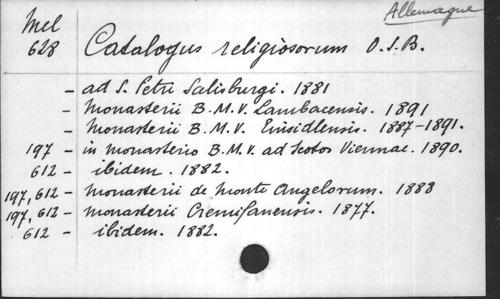 Allemagne
Mel
628 Catalogus religiosorum O.S.B.
- ad S. Petri Salisburgi. 1881
- Monasterii B.M.V. Lambacensis. 1891
- Monasterii B.M.V. Einsidlensis. 1887-1891.
197 - in Monasterio B.M.V. ad Scotos Viennae. 1890.
612 - ibidem. 1882.
197, 612 - Monasterii de Monte Angelorum. 1888
197, 612 - Monasterii Cremifanensis. 1877.
612 - ibidem. 1882.